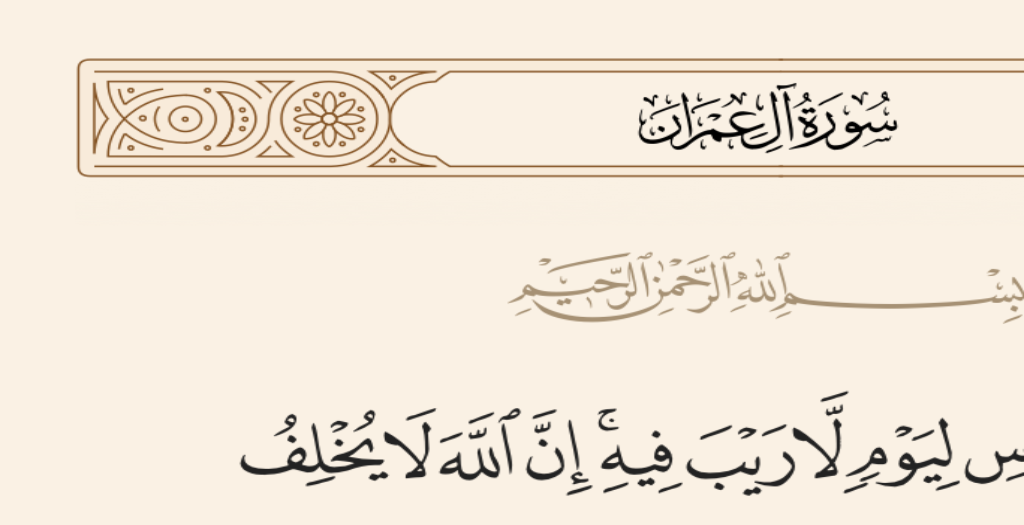 سُورَةُ آلِ عِمْرَان
بِسْمِ ٱللَّهِ ٱلرَّحْمَٰنِ ٱلرَّحِيمِ
لِيَوْمٍ لَّا رَيْبَ فِيهِ ۚ إِنَّ ٱللَّهَ لَا يُخْلِفُ